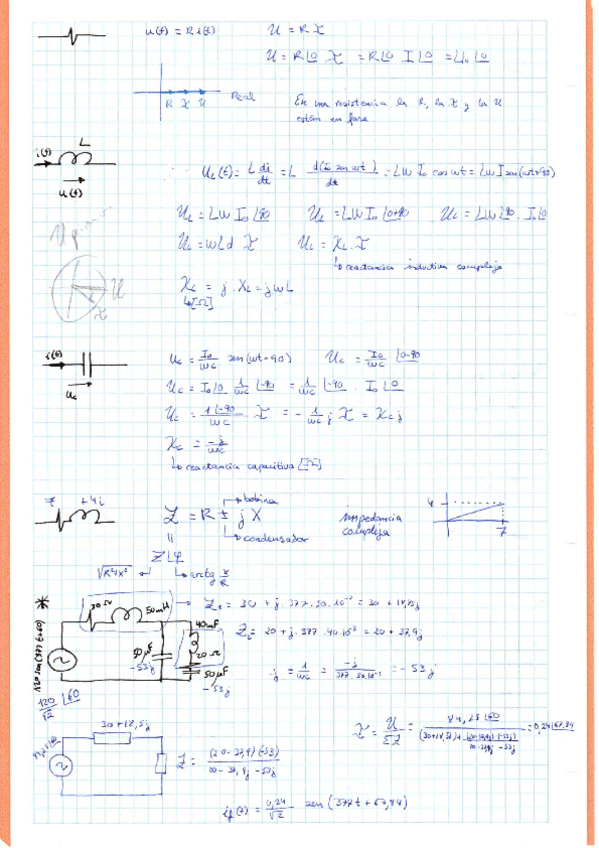 u(t) = R i(t)
U = R I
U = R∠0 I = R∠0 I∠0 = U₀∠0
R I U Real
En una resistencia la R, la I y la U
están en fase
i(t) L
u(t)
U_L(t) = L di/dt = L d(I₀ sen wt)/dt = Lw I₀ cos wt = Lw I sen(wt+90)
U_L = Lw I₀ ∠90 U_L = Lw I₀ ∠0+90 U_L = Lw∠90 . I₀∠0
U_L = wL∠ I U_L = X_L . I
↳ reactancia inductiva compleja
U
I
X_L = j . X_L = j w L
↳[Ω]
i(t)
U_c
U_c = I₀/wc sen(wt-90) U_c = I₀/wc ∠0-90
U_c = I₀∠0 1/wc ∠-90 = 1/wc ∠-90 . I₀∠0
U_c = 1∠-90/wc I = - 1/wc j I = X_c j
X_c = -j/wc
↳ reactancia capacitiva [Ω]
7 +4i
Z = R ± j X
bobina
condensador
impedancia
compleja
4
7
Z∠φ
√R²+X²
arctg X/R
*
30Ω 50mH
120 sen(377t+60)
50µF
-53j
40mF
20Ω
50µF
-53j
120/√2 ∠60
Z₁ = 30 + j . 377 . 50 . 10⁻³ = 30 + 18,85j
Z₂ = 20 + j . 377 . 40 . 10⁻³ = 20 + 37,9j
-j = 1/wc = -j/377 . 50 . 10⁻⁶ = -53j
30+18,5j
I = U/ΣZ = 84,85∠60 = 0,24∠67,94
i_f(t) = 0,24/√2 sen(377t + 67,94)